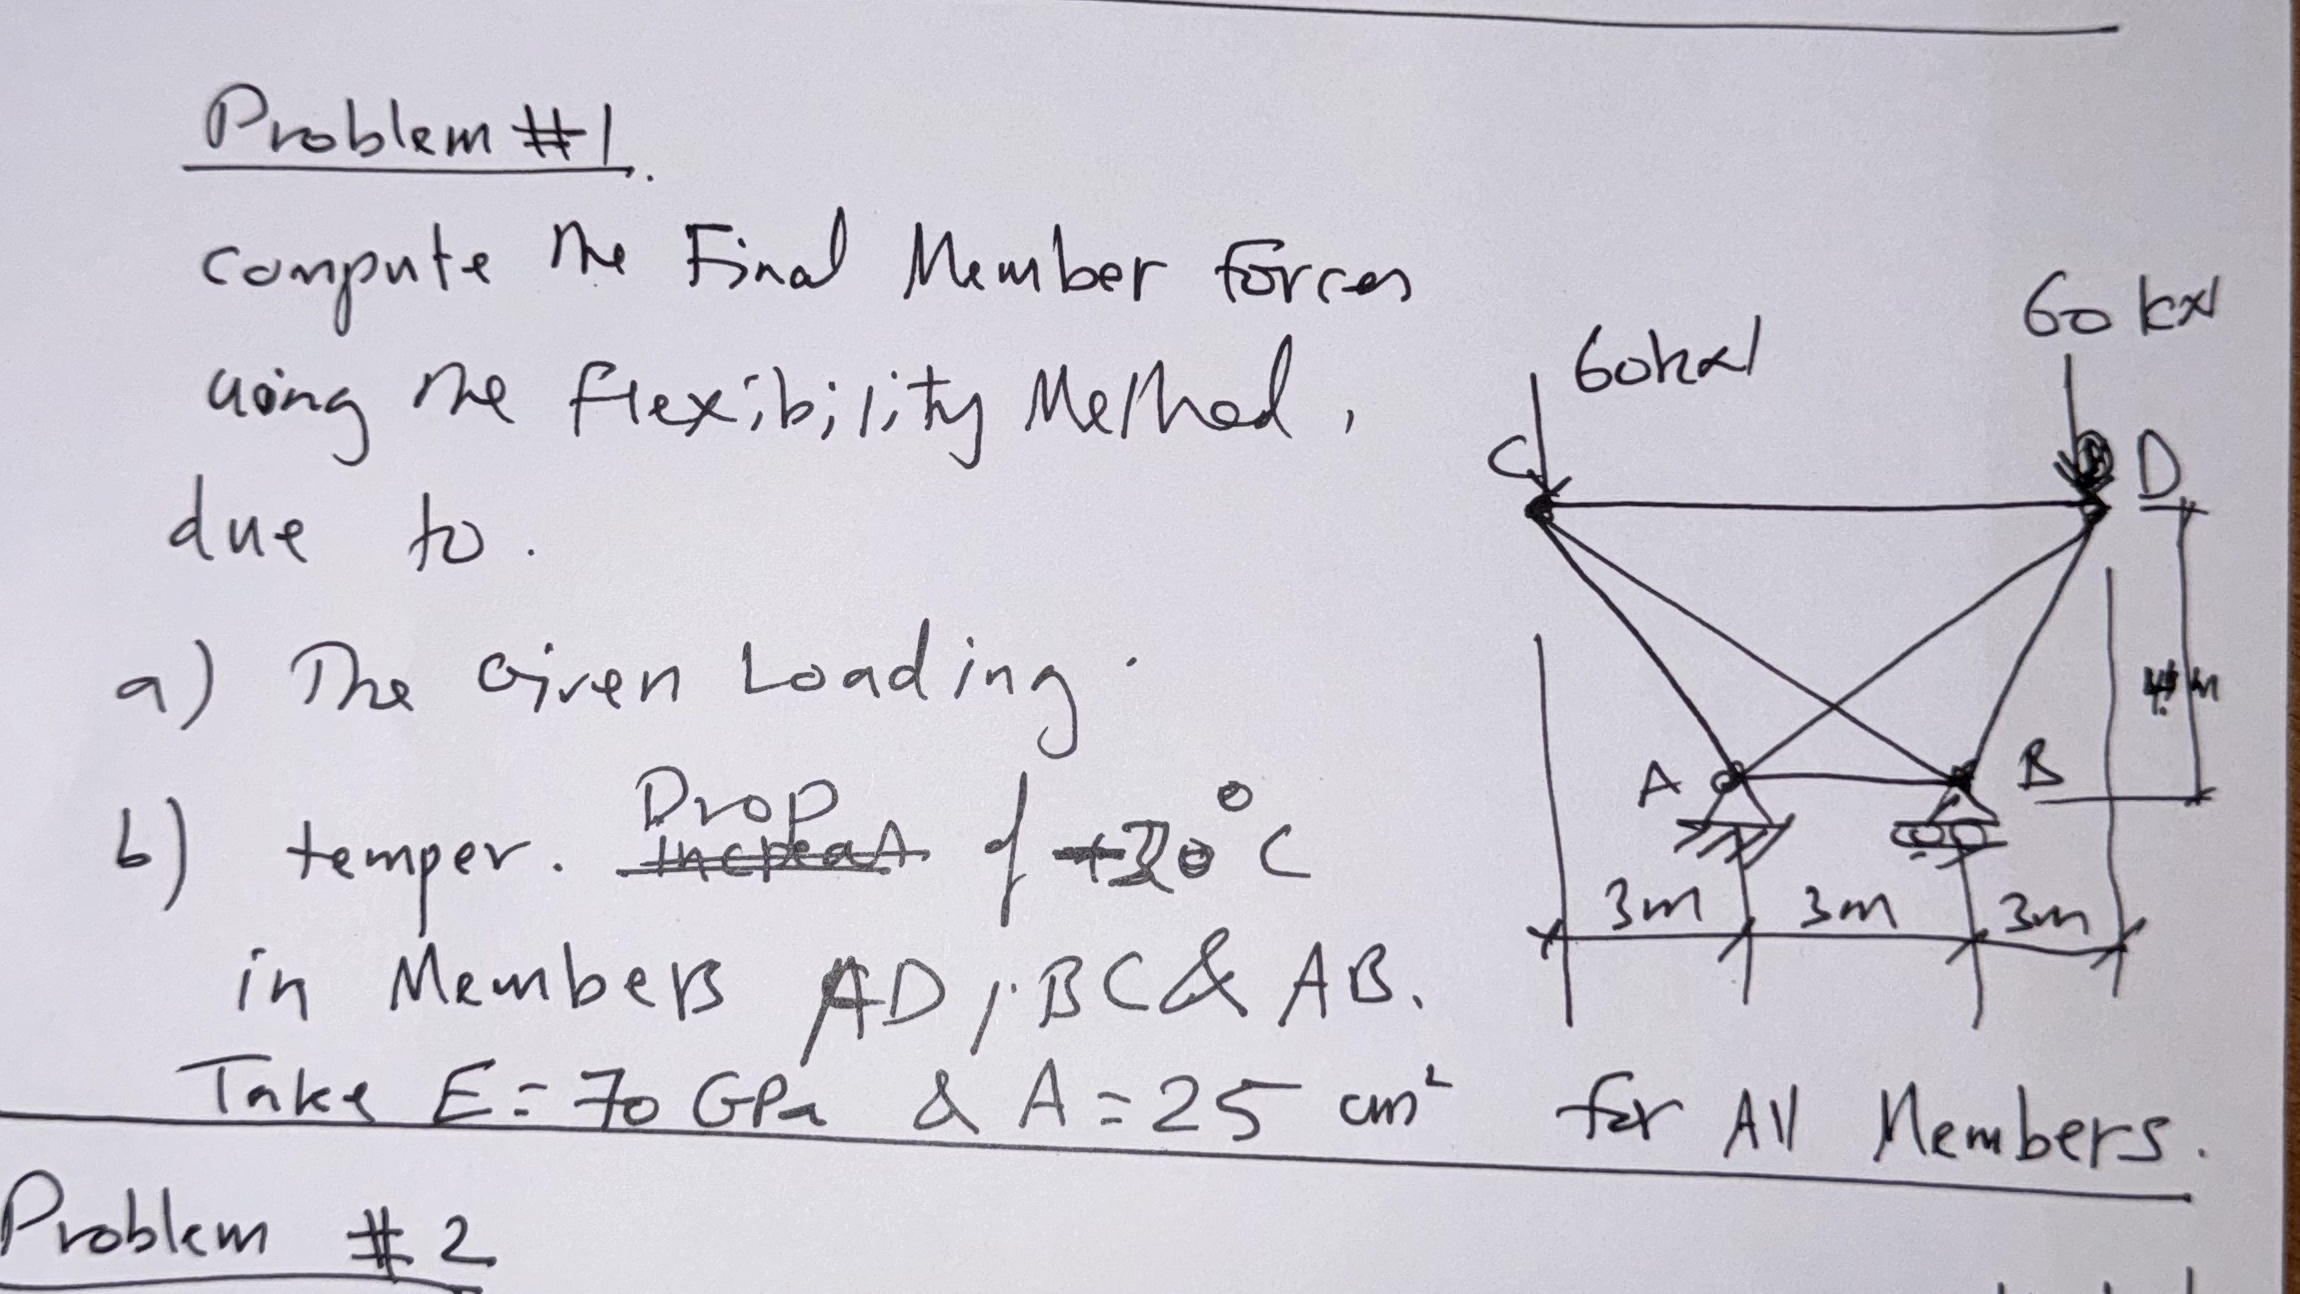 Problem #1.
compute the Final Member forces
using the flexibility Method,
due to.
a) The Given Loading.
b) temper. Drop of 20°C
in Members AD, BC & AB.
Take E = 70 GPa & A = 25 cm² for All Members.
60kN
60 kN
C
D
4 m
A
B
3m 3m 3m
Problem #2